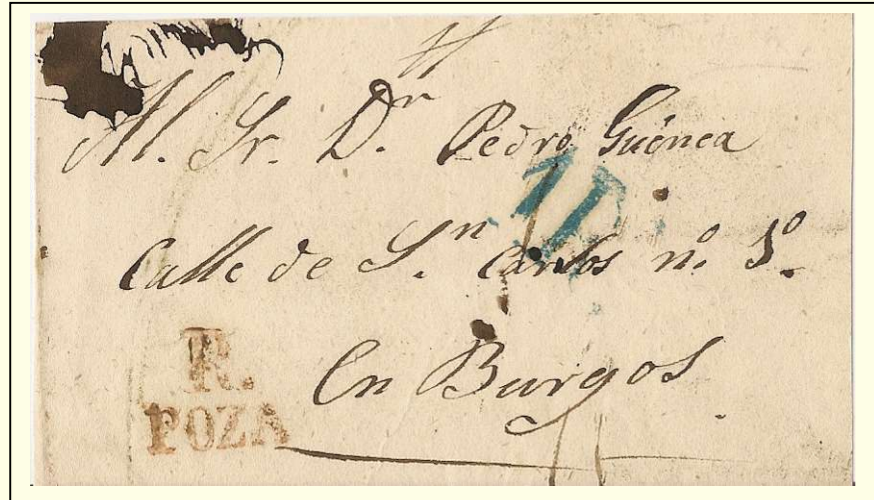 Al. Sr. Dr. Pedro Guinea
Calle de Sn. Carlos nº. 1º.
En Burgos
R.
POZA